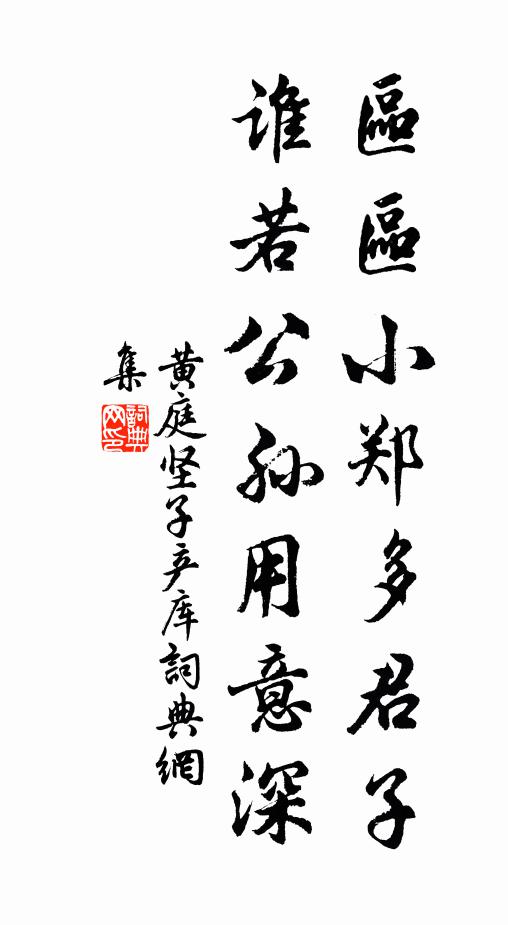 區區小郑多君子
谁若公孙用意深
黄庭坚子产库詞典網
集
詞典
网印